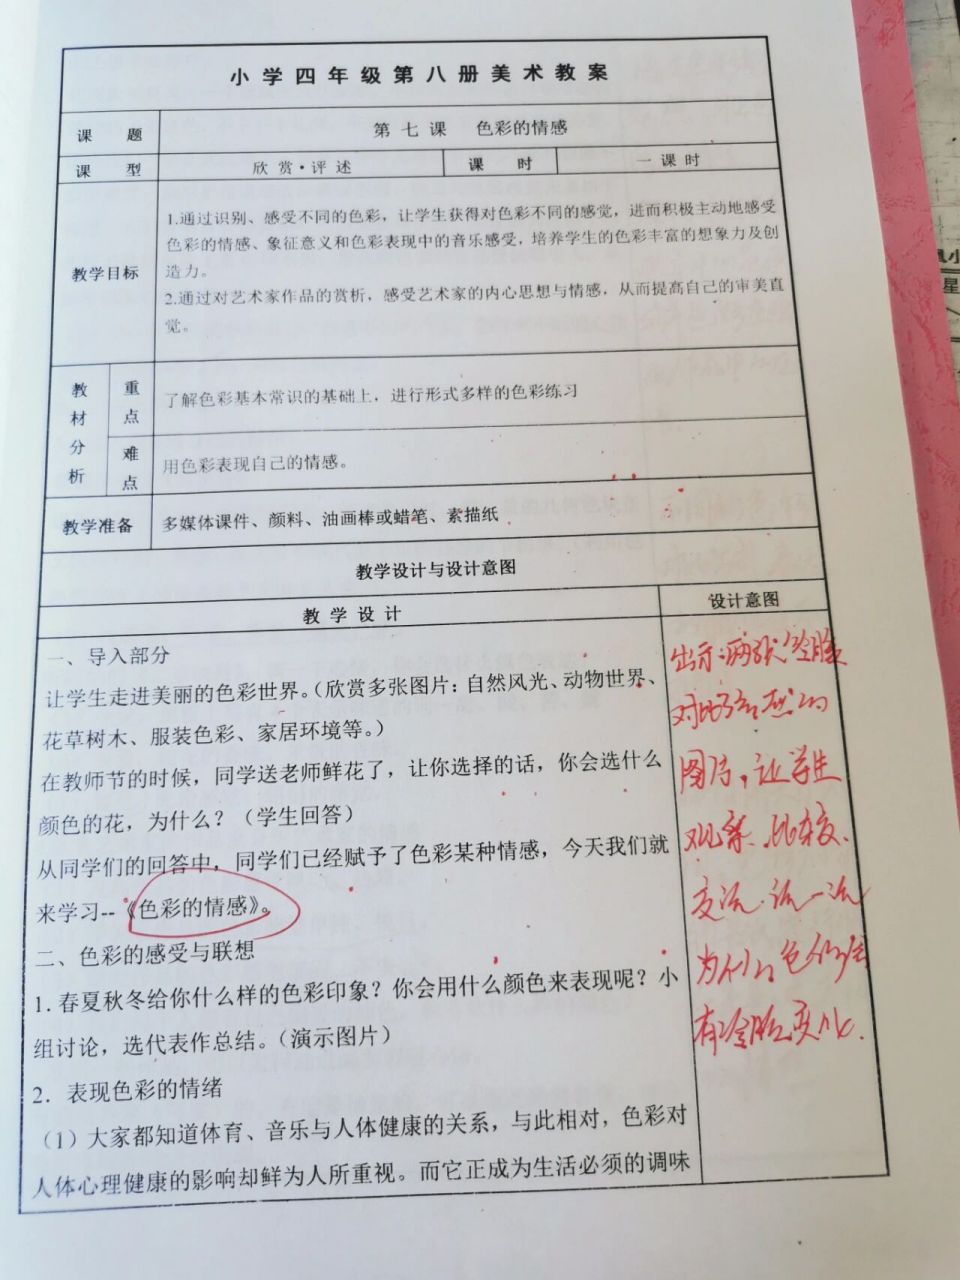 小学四年级第八册美术教案
课 题 第七课 色彩的情感
课 型 欣赏·评述 课 时 一课时
教学目标
1.通过识别、感受不同的色彩，让学生获得对色彩不同的感觉，进而积极主动地感受
色彩的情感、象征意义和色彩表现中的音乐感受，培养学生的色彩丰富的想象力及创
造力。
2.通过对艺术家作品的赏析，感受艺术家的内心思想与情感，从而提高自己的审美直
觉。
教材分析
重点 了解色彩基本常识的基础上，进行形式多样的色彩练习
难点 用色彩表现自己的情感。
教学准备 多媒体课件、颜料、油画棒或蜡笔、素描纸
教学设计与设计意图
教 学 设 计
一、导入部分
让学生走进美丽的色彩世界。（欣赏多张图片：自然风光、动物世界、
花草树木、服装色彩、家居环境等。）
在教师节的时候，同学送老师鲜花了，让你选择的话，你会选什么
颜色的花，为什么？（学生回答）
从同学们的回答中，同学们已经赋予了色彩某种情感，今天我们就
来学习--《色彩的情感》。
二、色彩的感受与联想
1.春夏秋冬给你什么样的色彩印象？你会用什么颜色来表现呢？小
组讨论，选代表作总结。（演示图片）
2．表现色彩的情绪
（1）大家都知道体育、音乐与人体健康的关系，与此相对，色彩对
人体心理健康的影响却鲜为人所重视。而它正成为生活必须的调味
设计意图
出示两张冷暖
对比强烈的
图片，让学生
观察、比较、
交流、说一说
为什么色彩会
有冷暖变化.